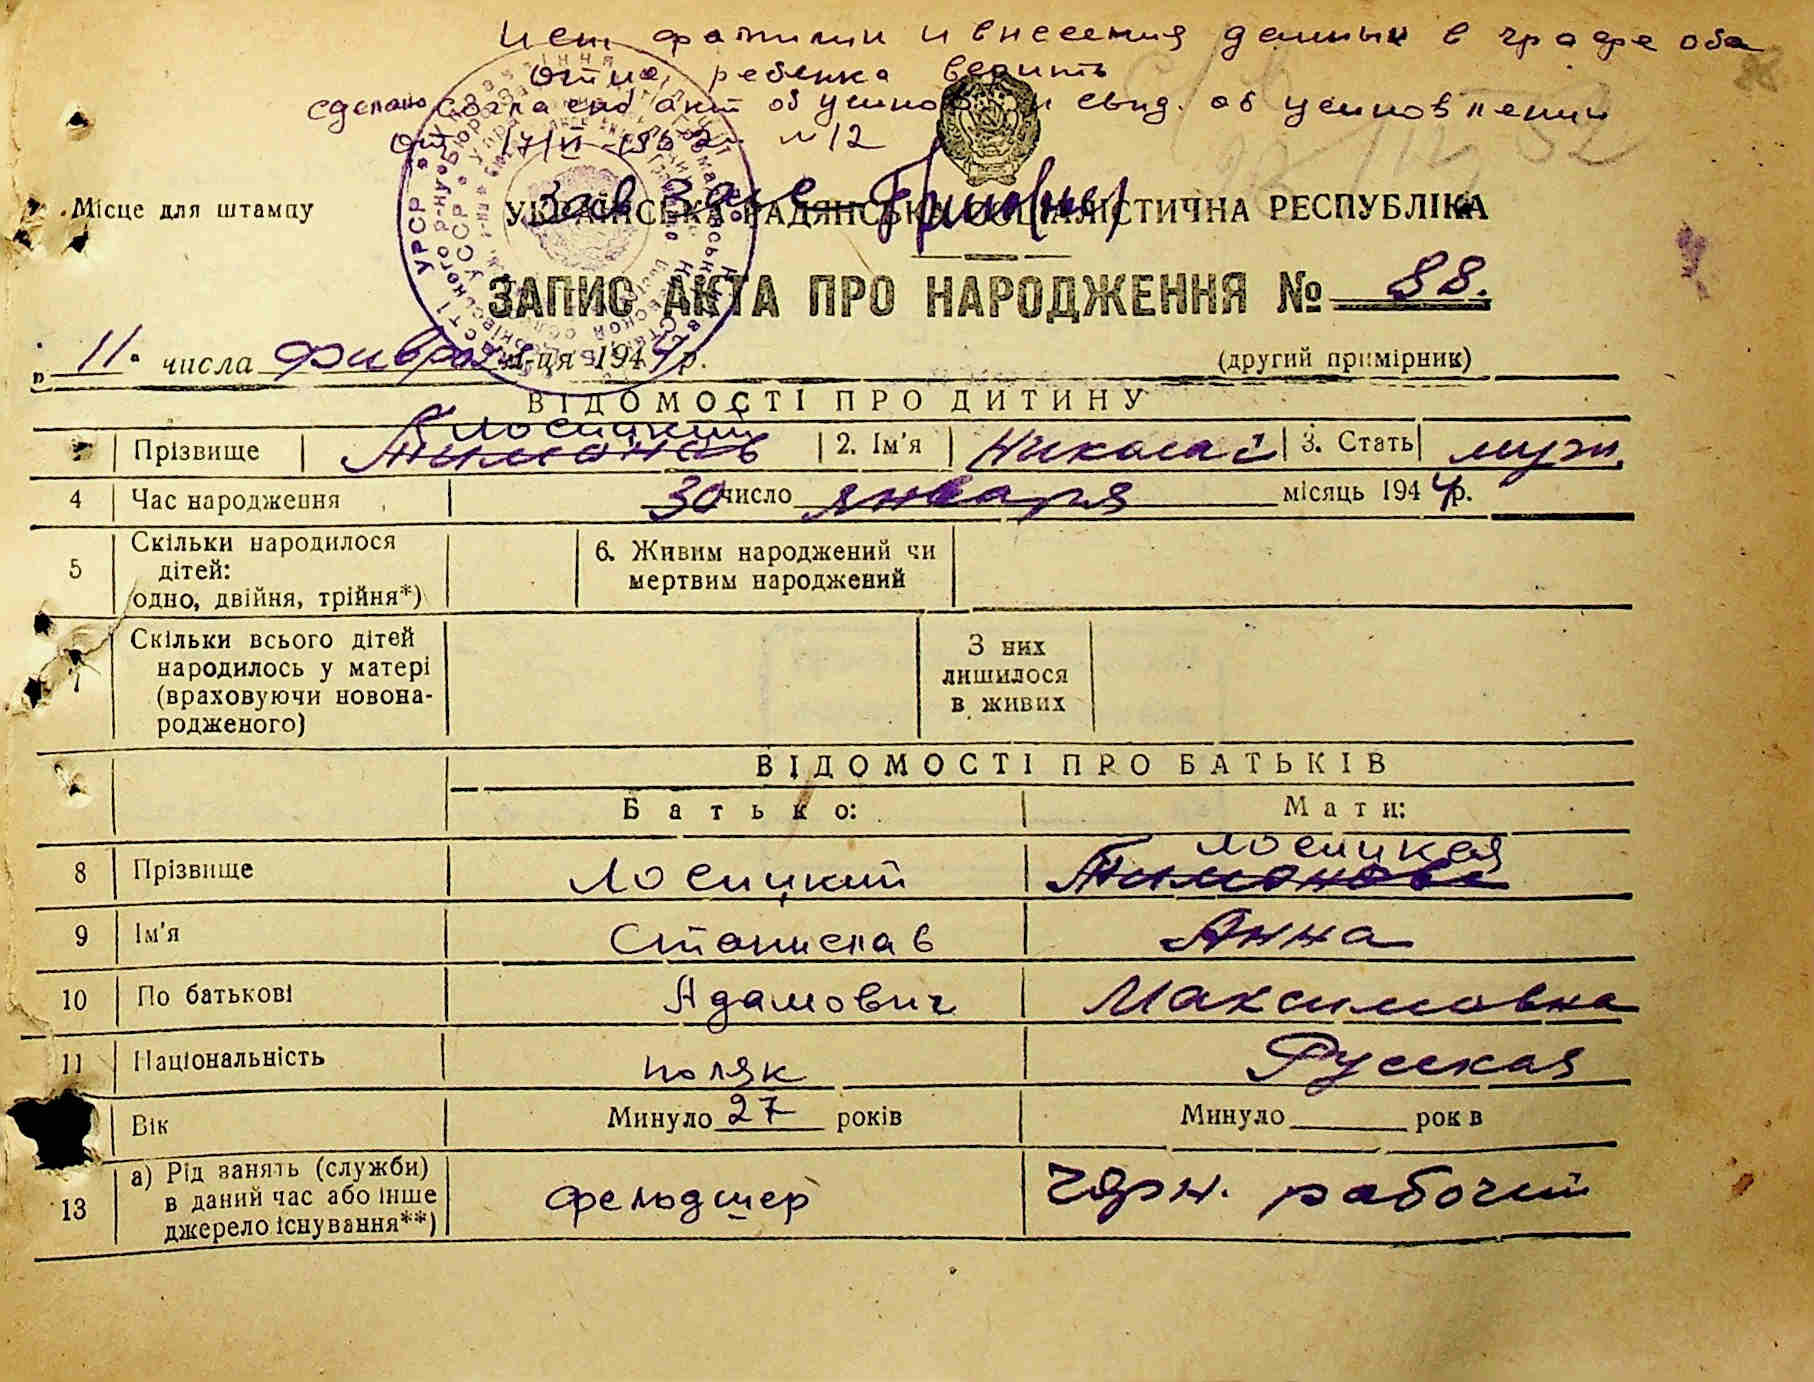 исп. фамилии и внесения данных в графе оба
отца, ребенка верить
сделано согласно акт об усынов и свид. об усыновлении
от 17/VI-1962 г. N 12
Зав Загс
Місце для штампу
УКРАЇНСЬКА РАДЯНСЬКА СОЦІАЛІСТИЧНА РЕСПУБЛІКА
ЗАПИС АКТА ПРО НАРОДЖЕННЯ № 88.
„ 11 " числа февраля м-ця 1944 р.
(другий примірник)
ВІДОМОСТІ ПРО ДИТИНУ
Лосицкий
Прізвище Тимонов 2. Ім'я Николай 3. Стать муж.
4 Час народження 30 число января місяць 1944 р.
5 Скільки народилося дітей: одно, двійня, трійня*) 6. Живим народжений чи мертвим народжений
7 Скільки всього дітей народилось у матері (враховуючи новонародженого) З них лишилося в живих
ВІДОМОСТІ ПРО БАТЬКІВ
Батько: Мати:
Лосицкая
8 Прізвище Лосицкий Тимонова
9 Ім'я Станислав Анна
10 По батькові Адамович Максимовна
11 Національність поляк Русская
Вік Минуло 27 років Минуло рок в
13 а) Рід занять (служби) в даний час або інше джерело існування**) фельдшер чярн. рабочий